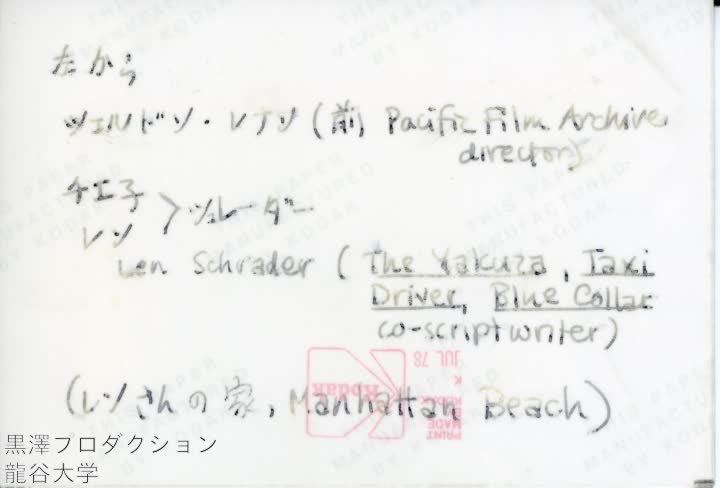 左から
シェルドン・レナン (前, Pacific Film Archive,
director)
チエ子
レン > シュレーダー
Len Schrader ( The Yakuza, Taxi
Driver, Blue Collar
co-scriptwriter)
(レンさんの家, Manhattan Beach)
Kodak
JUL 78
K
KODAK
MADE
PRINT
THIS PAPER
MANUFACTURED
BY KODAK
黒澤プロダクション
龍谷大学